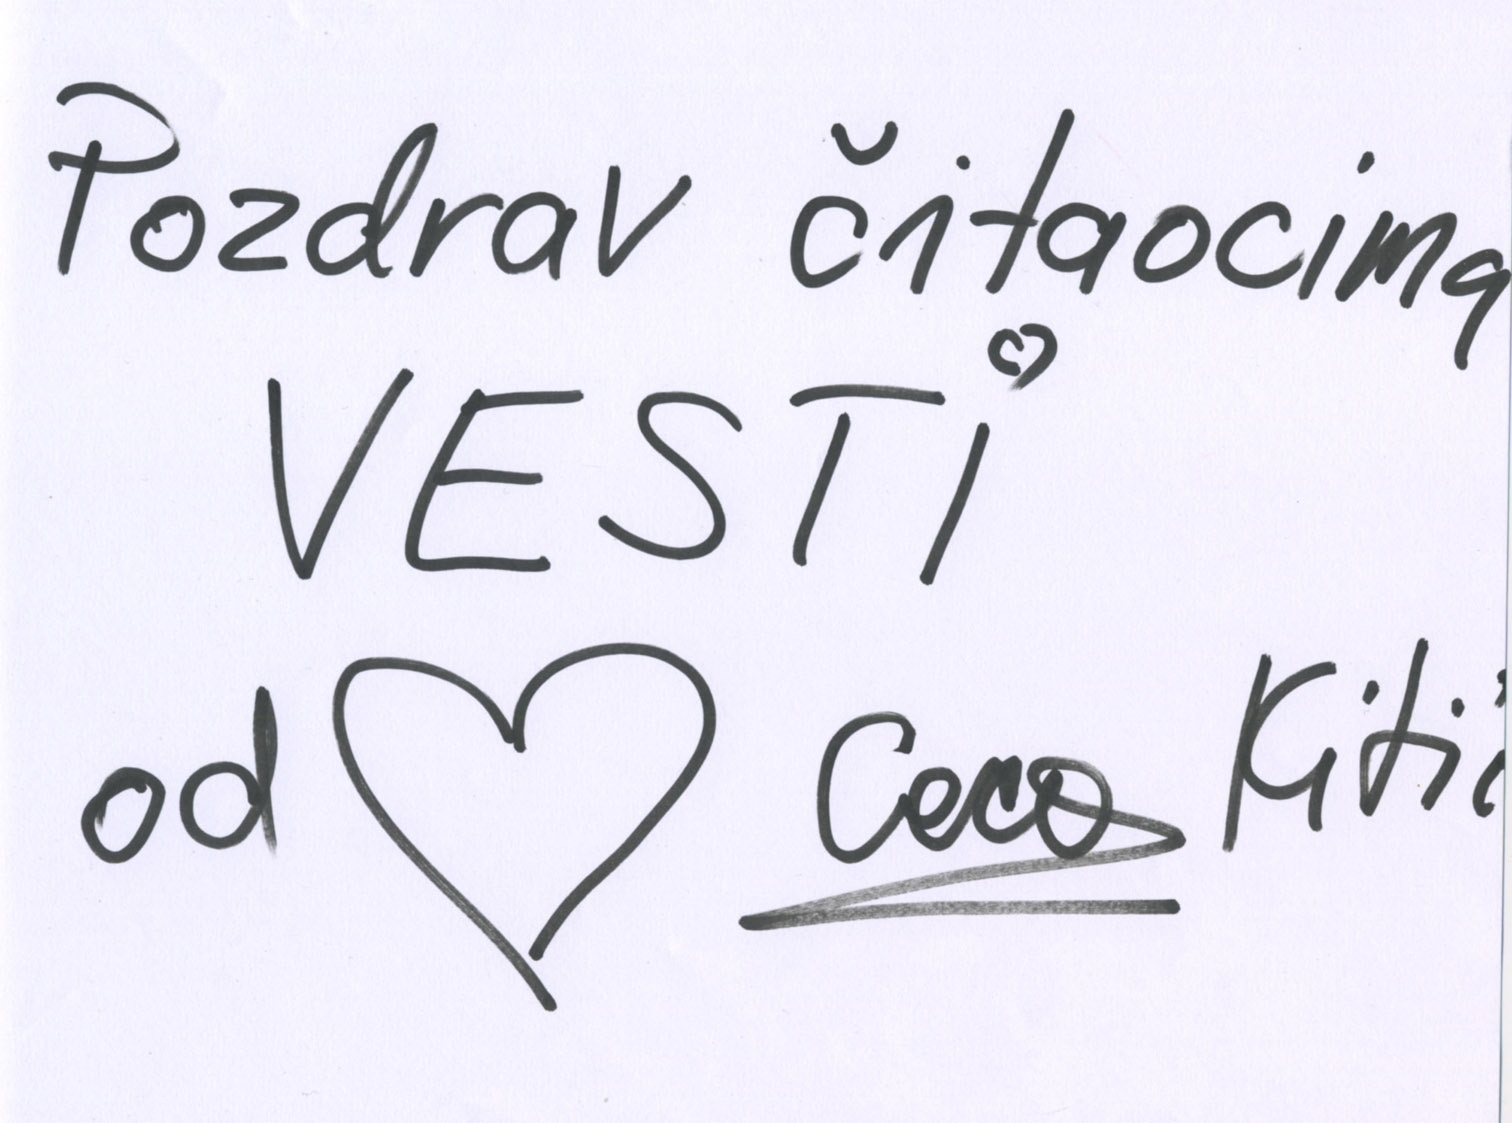 Pozdrav čitaocima
VESTi
od Ceca Kitić